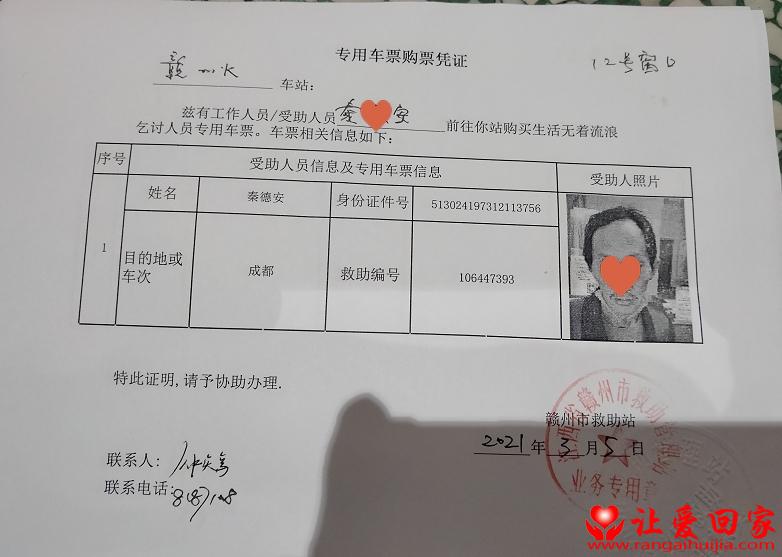 专用车票购票凭证
12号窗口
赣州火 车站:
兹有工作人员/受助人员 秦 安 前往你站购买生活无着流浪
乞讨人员专用车票。车票相关信息如下:
序号 受助人员信息及专用车票信息 受助人照片
1 姓名 秦德安 身份证件号 513024197312113756
目的地或车次 成都 救助编号 106447393
特此证明,请予协助办理.
赣州市救助站
2021年3月5日
联系人:
联系电话:
江西省赣州市救助管理站
业务专用章
让爱回家
www.rangaihuijia.com